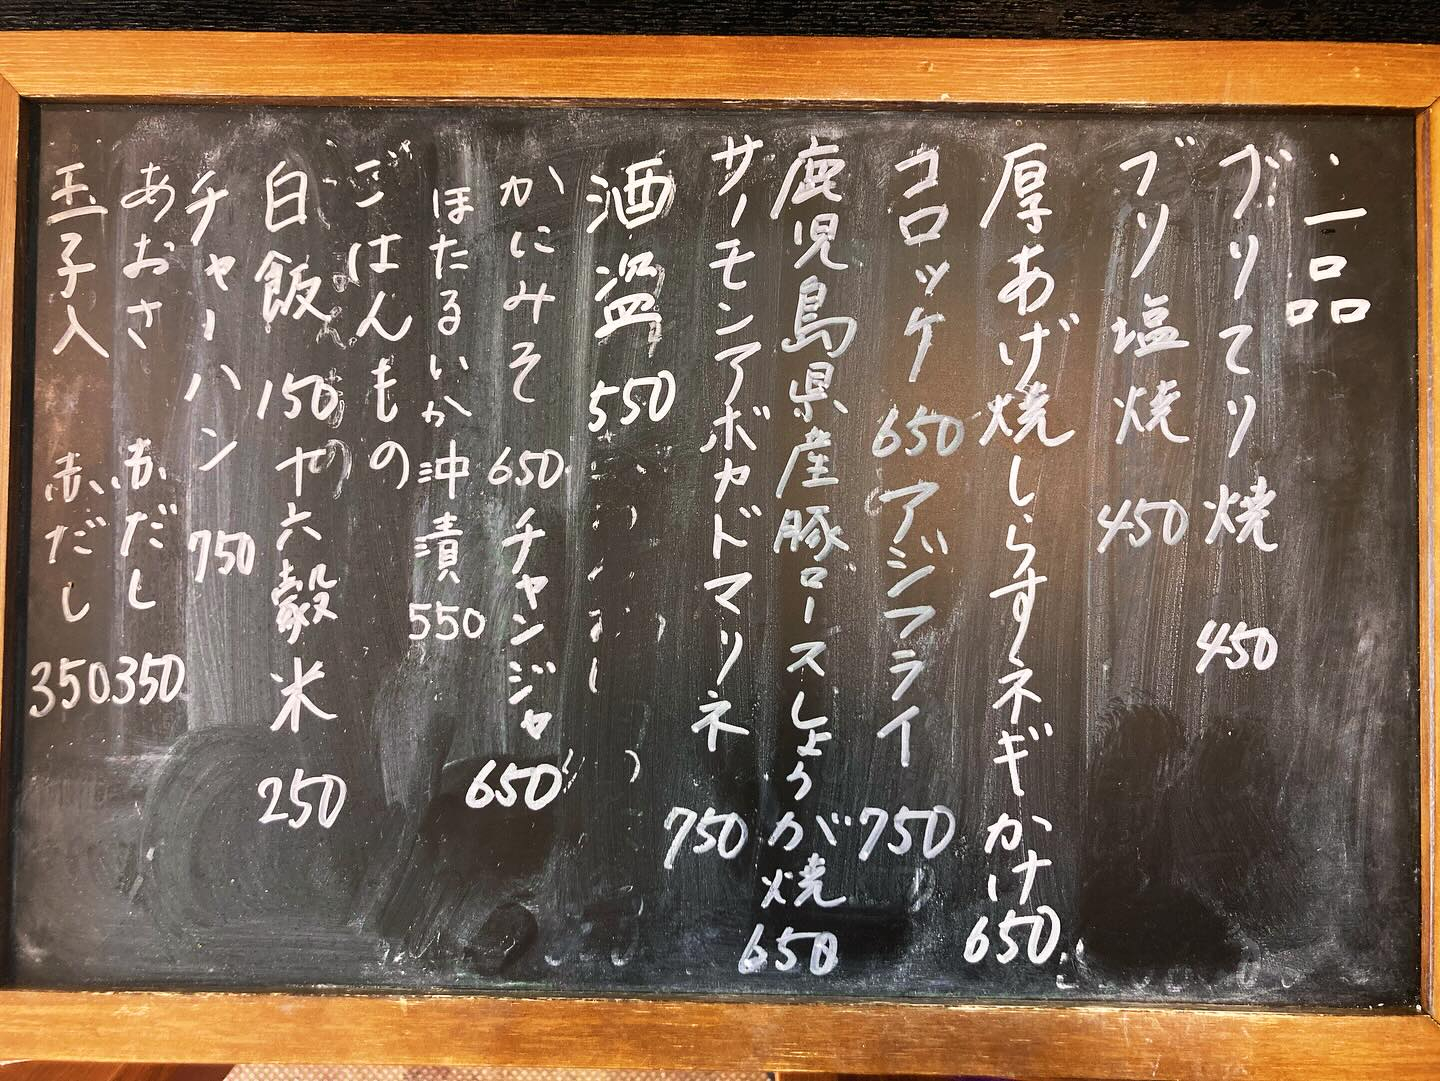 一品
ブリてり焼 450
ブリ塩焼 450
厚あげ焼しらすネギかけ 650
コロッケ 650 アジフライ 750
鹿児島県産豚ロースしょうが焼 650
サーモンアボカドマリネ 750
酒盗 550
かにみそ 650 チャンジャ 650
ほたるいか沖漬 550
ごはんもの
白飯 150 十六穀米 250
チャーハン 750
あおさ 赤だし 350
玉子入 赤だし 350